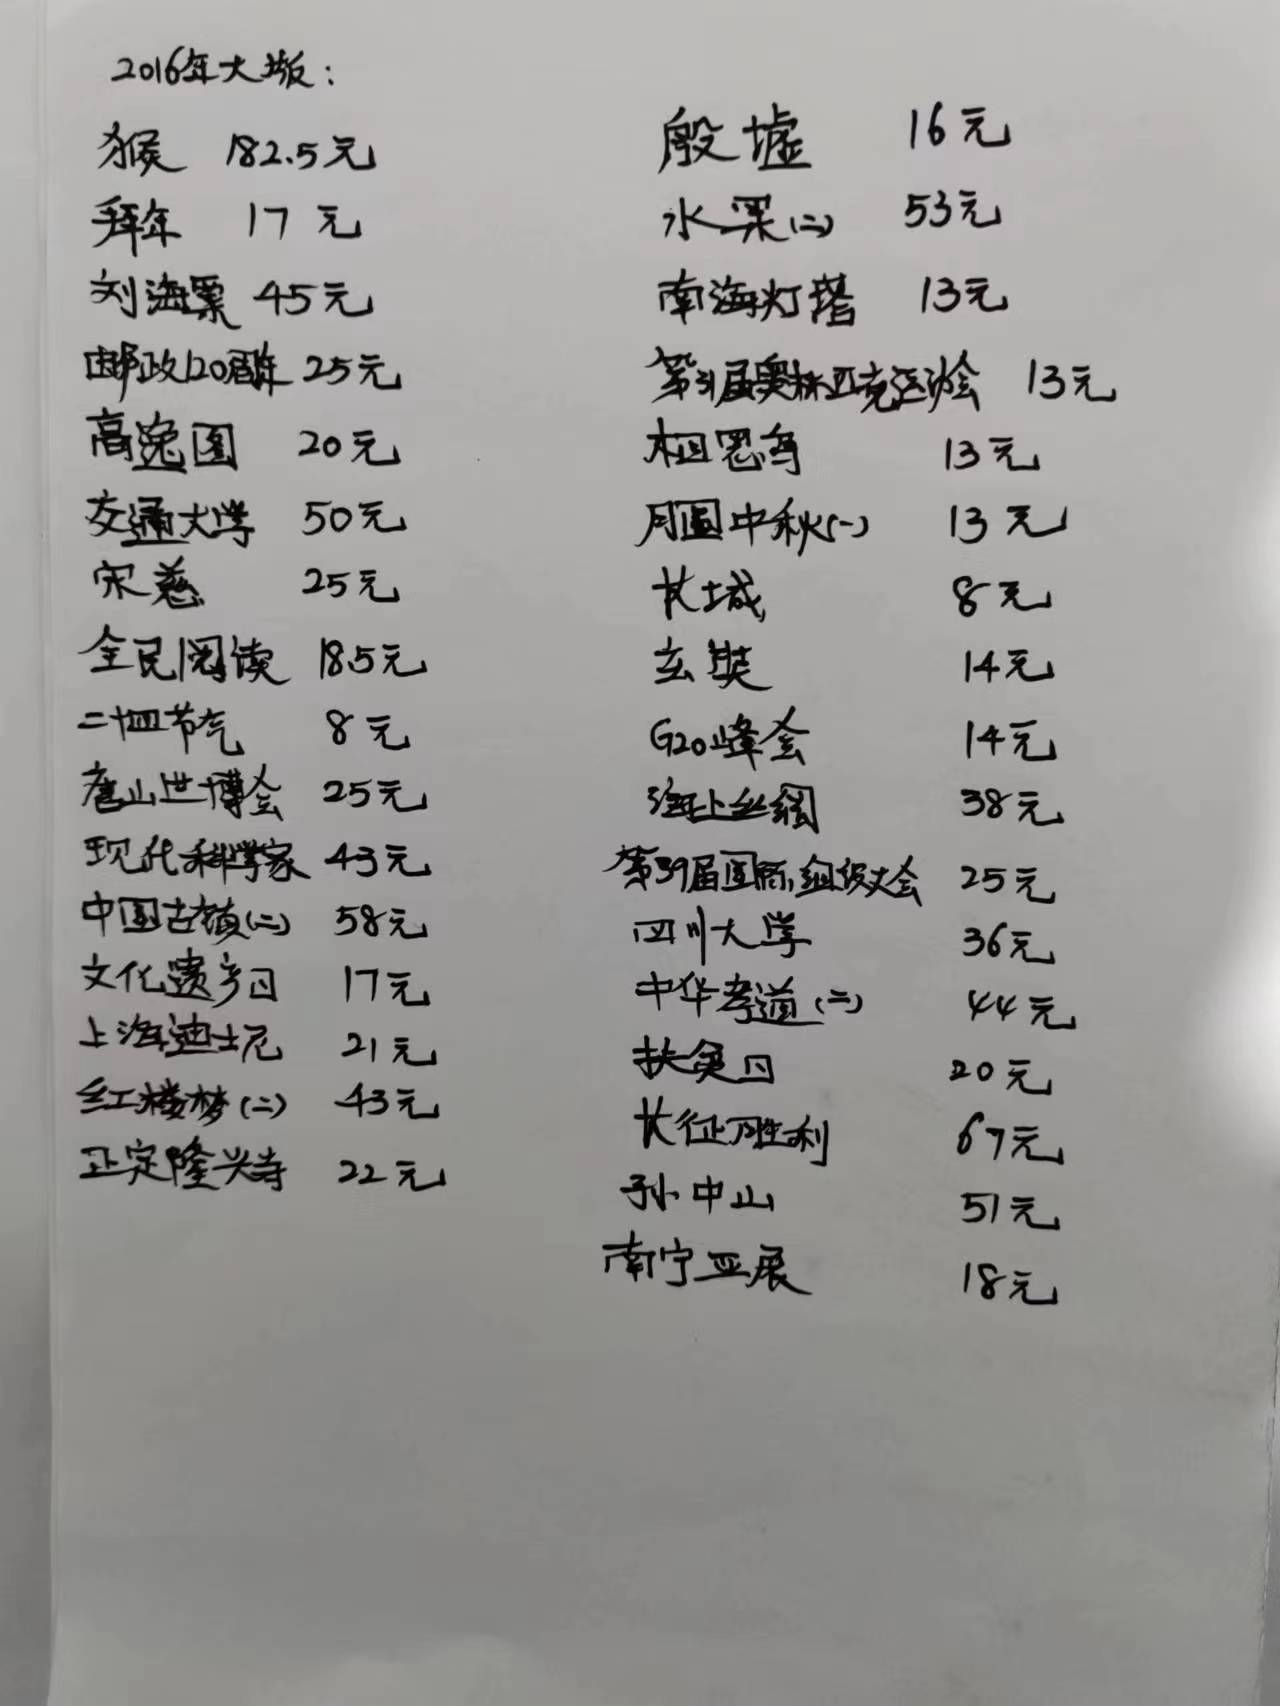 2016年大版：
猴 182.5元
拜年 17元
刘海粟 45元
邮政120周年 25元
高逸图 20元
交通大学 50元
宋慈 25元
全民阅读 18.5元
二十四节气 8元
唐山世博会 25元
现代科学家 43元
中国古镇(二) 58元
文化遗产日 17元
上海迪士尼 21元
红楼梦(二) 43元
正定隆兴寺 22元
殷墟 16元
水果(二) 53元
南海灯塔 13元
第31届奥林匹克运动会 13元
相思鸟 13元
月圆中秋(一) 13元
长城 8元
玄奘 14元
G20峰会 14元
海上丝绸 38元
第39届国际组织大会 25元
四川大学 36元
中华孝道(二) 44元
扶贫日 20元
长征胜利 67元
孙中山 51元
南宁亚展 18元